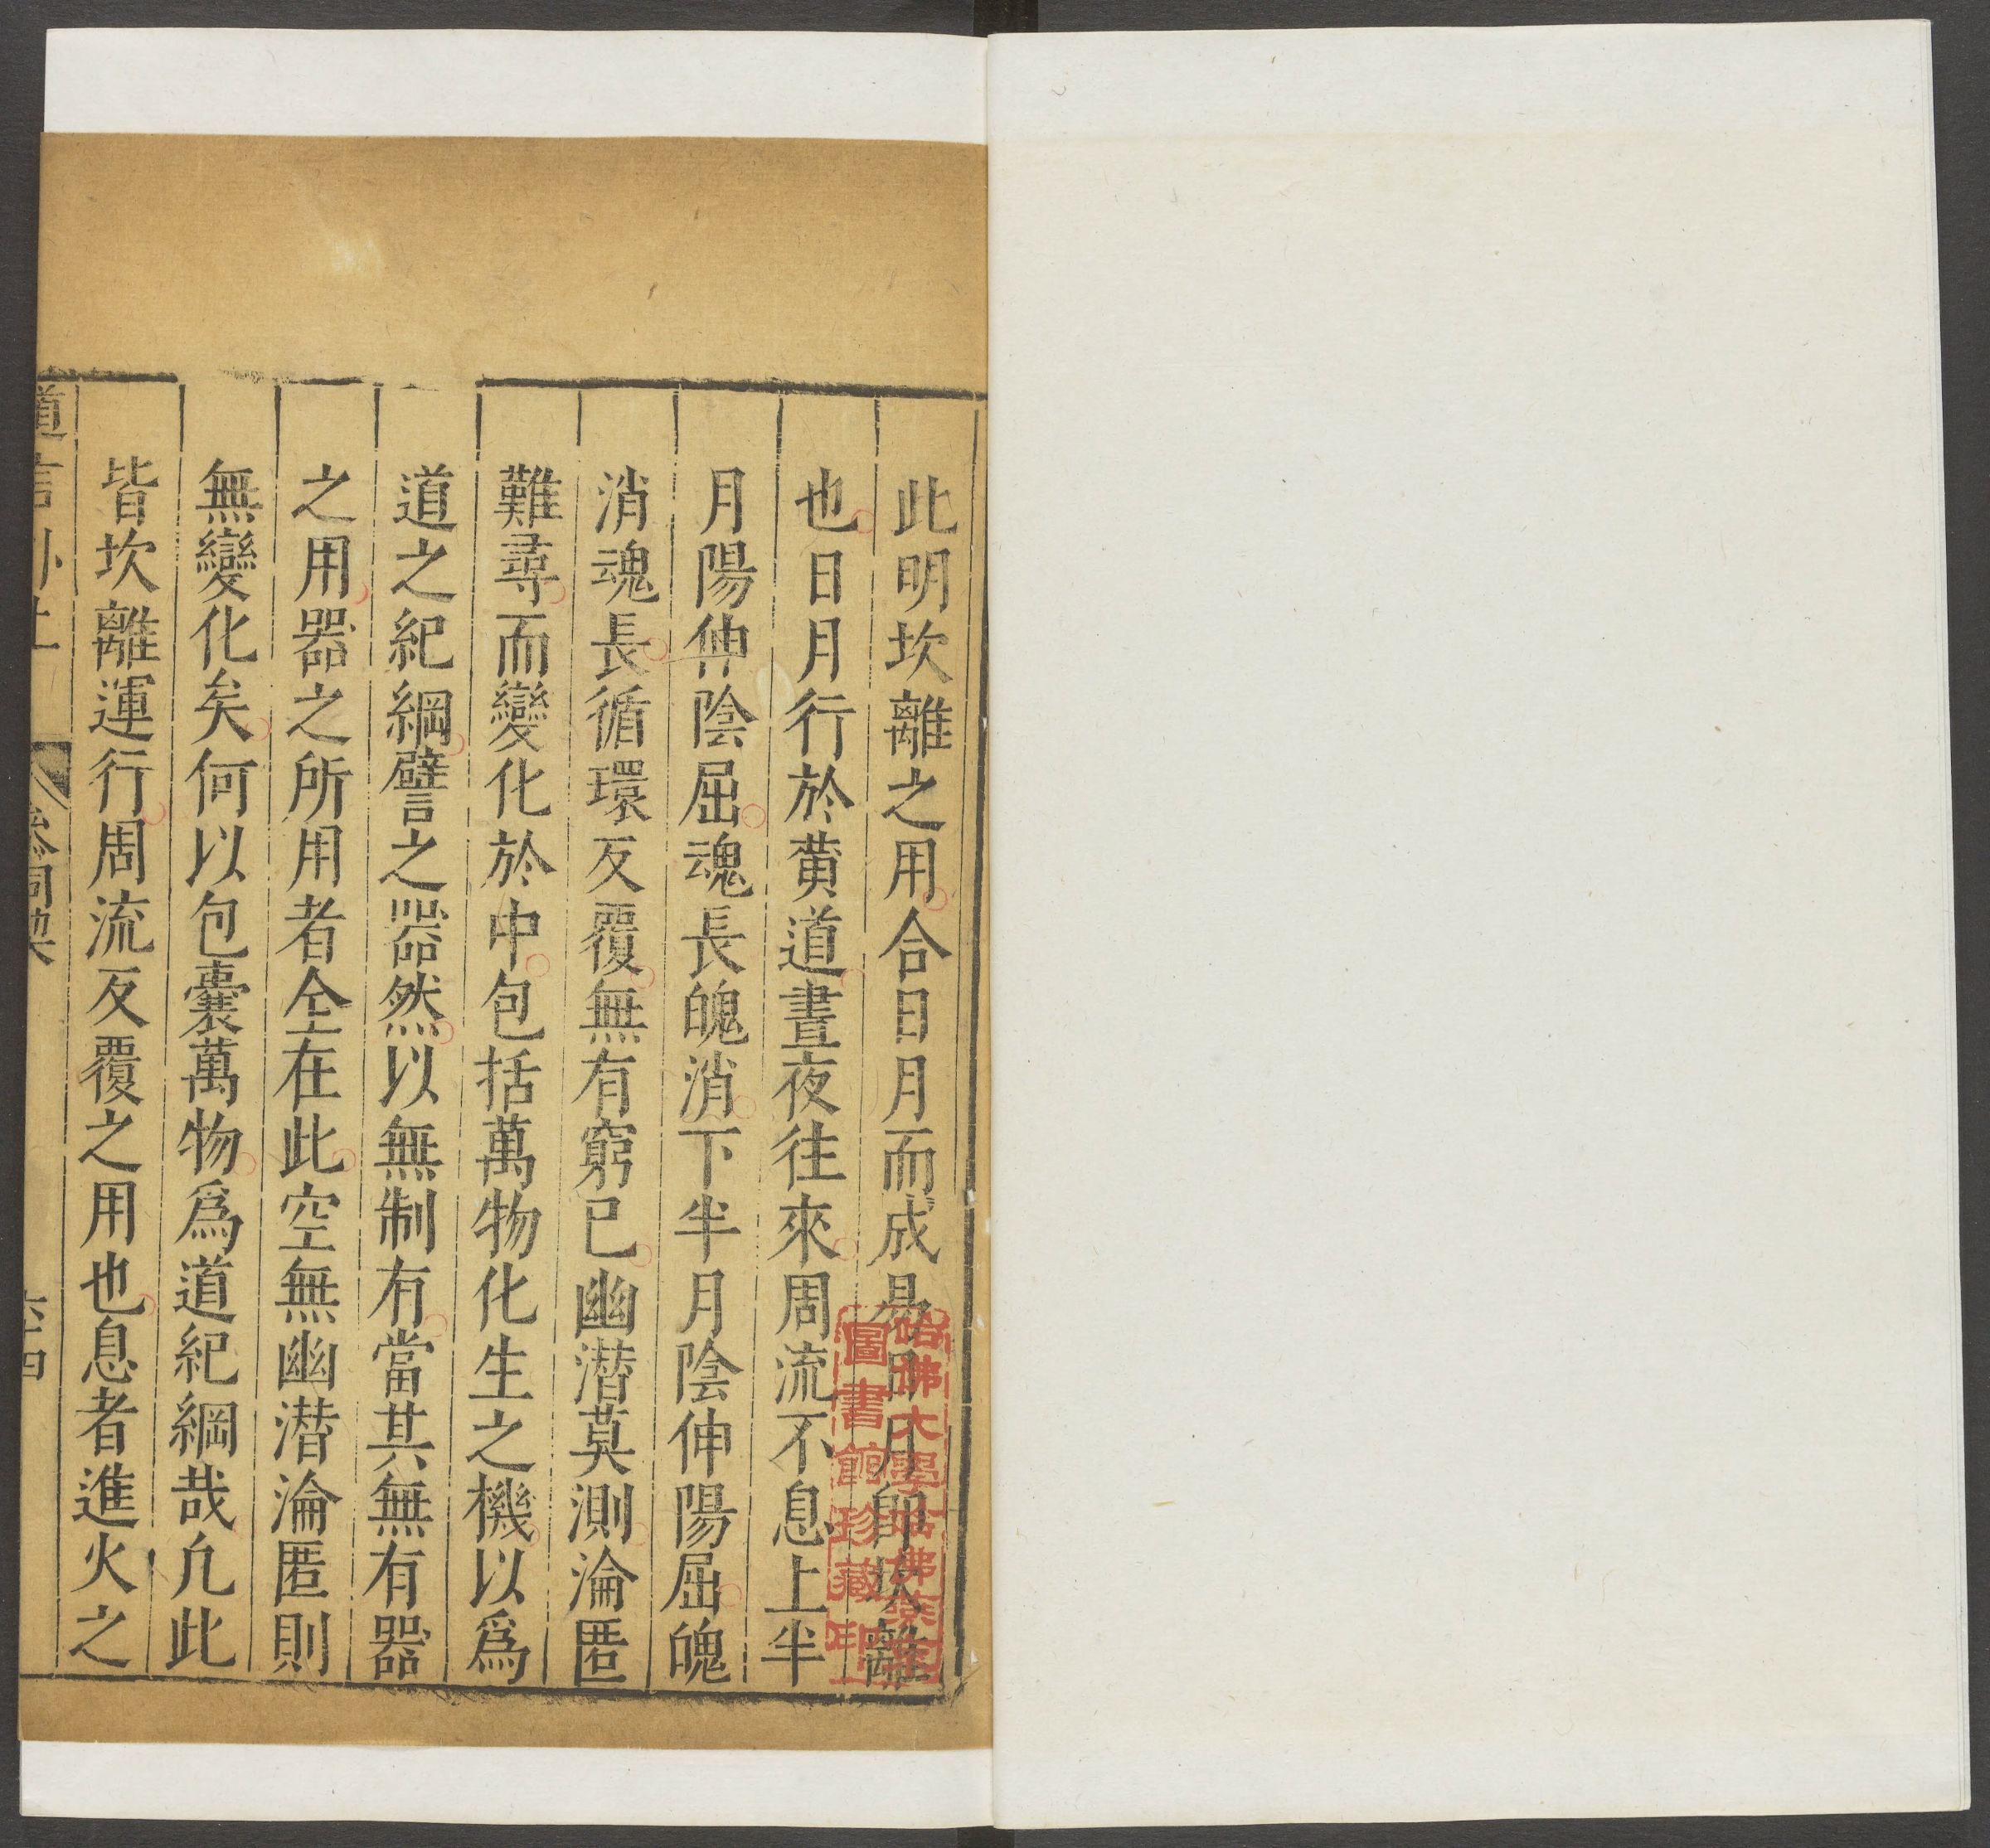 此明坎離之用合日月而成易日月即坎離
也日月行於黄道晝夜往來周流不息上半
月陽伸陰屈魂長魄消下半月陰伸陽屈魄
消魂長循環反覆無有窮已幽潜莫測淪匿
難尋而變化於中包括萬物化生之機以爲
道之紀綱譬之器然以無制有當其無有器
之用器之所用者仝在此空無幽潜淪匿則
無變化矣何以包囊萬物爲道紀綱哉凢此
皆坎離運行周流反覆之用也息者進火之
道言外上
參同契
六十四
哈佛大學哈佛燕京
圖書館珍藏印